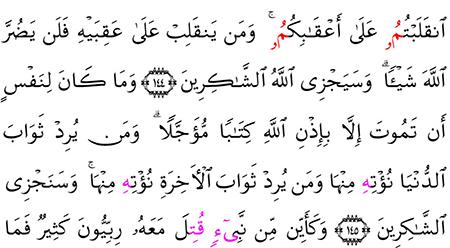 ٱنقَلَبْتُمُۥ عَلَىٰٓ أَعْقَٰبِكُمُۥ ۚ وَمَن يَنقَلِبْ عَلَىٰ عَقِبَيْهِ فَلَن يَضُرَّ
ٱللَّهَ شَيْـًٔا ۗ وَسَيَجْزِى ٱللَّهُ ٱلشَّٰكِرِينَ ﴿١٤٤﴾ وَمَا كَانَ لِنَفْسٍ
أَن تَمُوتَ إِلَّا بِإِذْنِ ٱللَّهِ كِتَٰبًا مُّؤَجَّلًا ۗ وَمَن يُرِدْ ثَوَابَ
ٱلدُّنْيَا نُؤْتِهِ مِنْهَا وَمَن يُرِدْ ثَوَابَ ٱلْأَخِرَةِ نُؤْتِهِ مِنْهَا ۚ وَسَنَجْزِى
ٱلشَّٰكِرِينَ ﴿١٤٥﴾ وَكَأَيِّن مِّن نَّبِىٓءٍ قُتِلَ مَعَهُۥ رِبِّيُّونَ كَثِيرٌ فَمَا